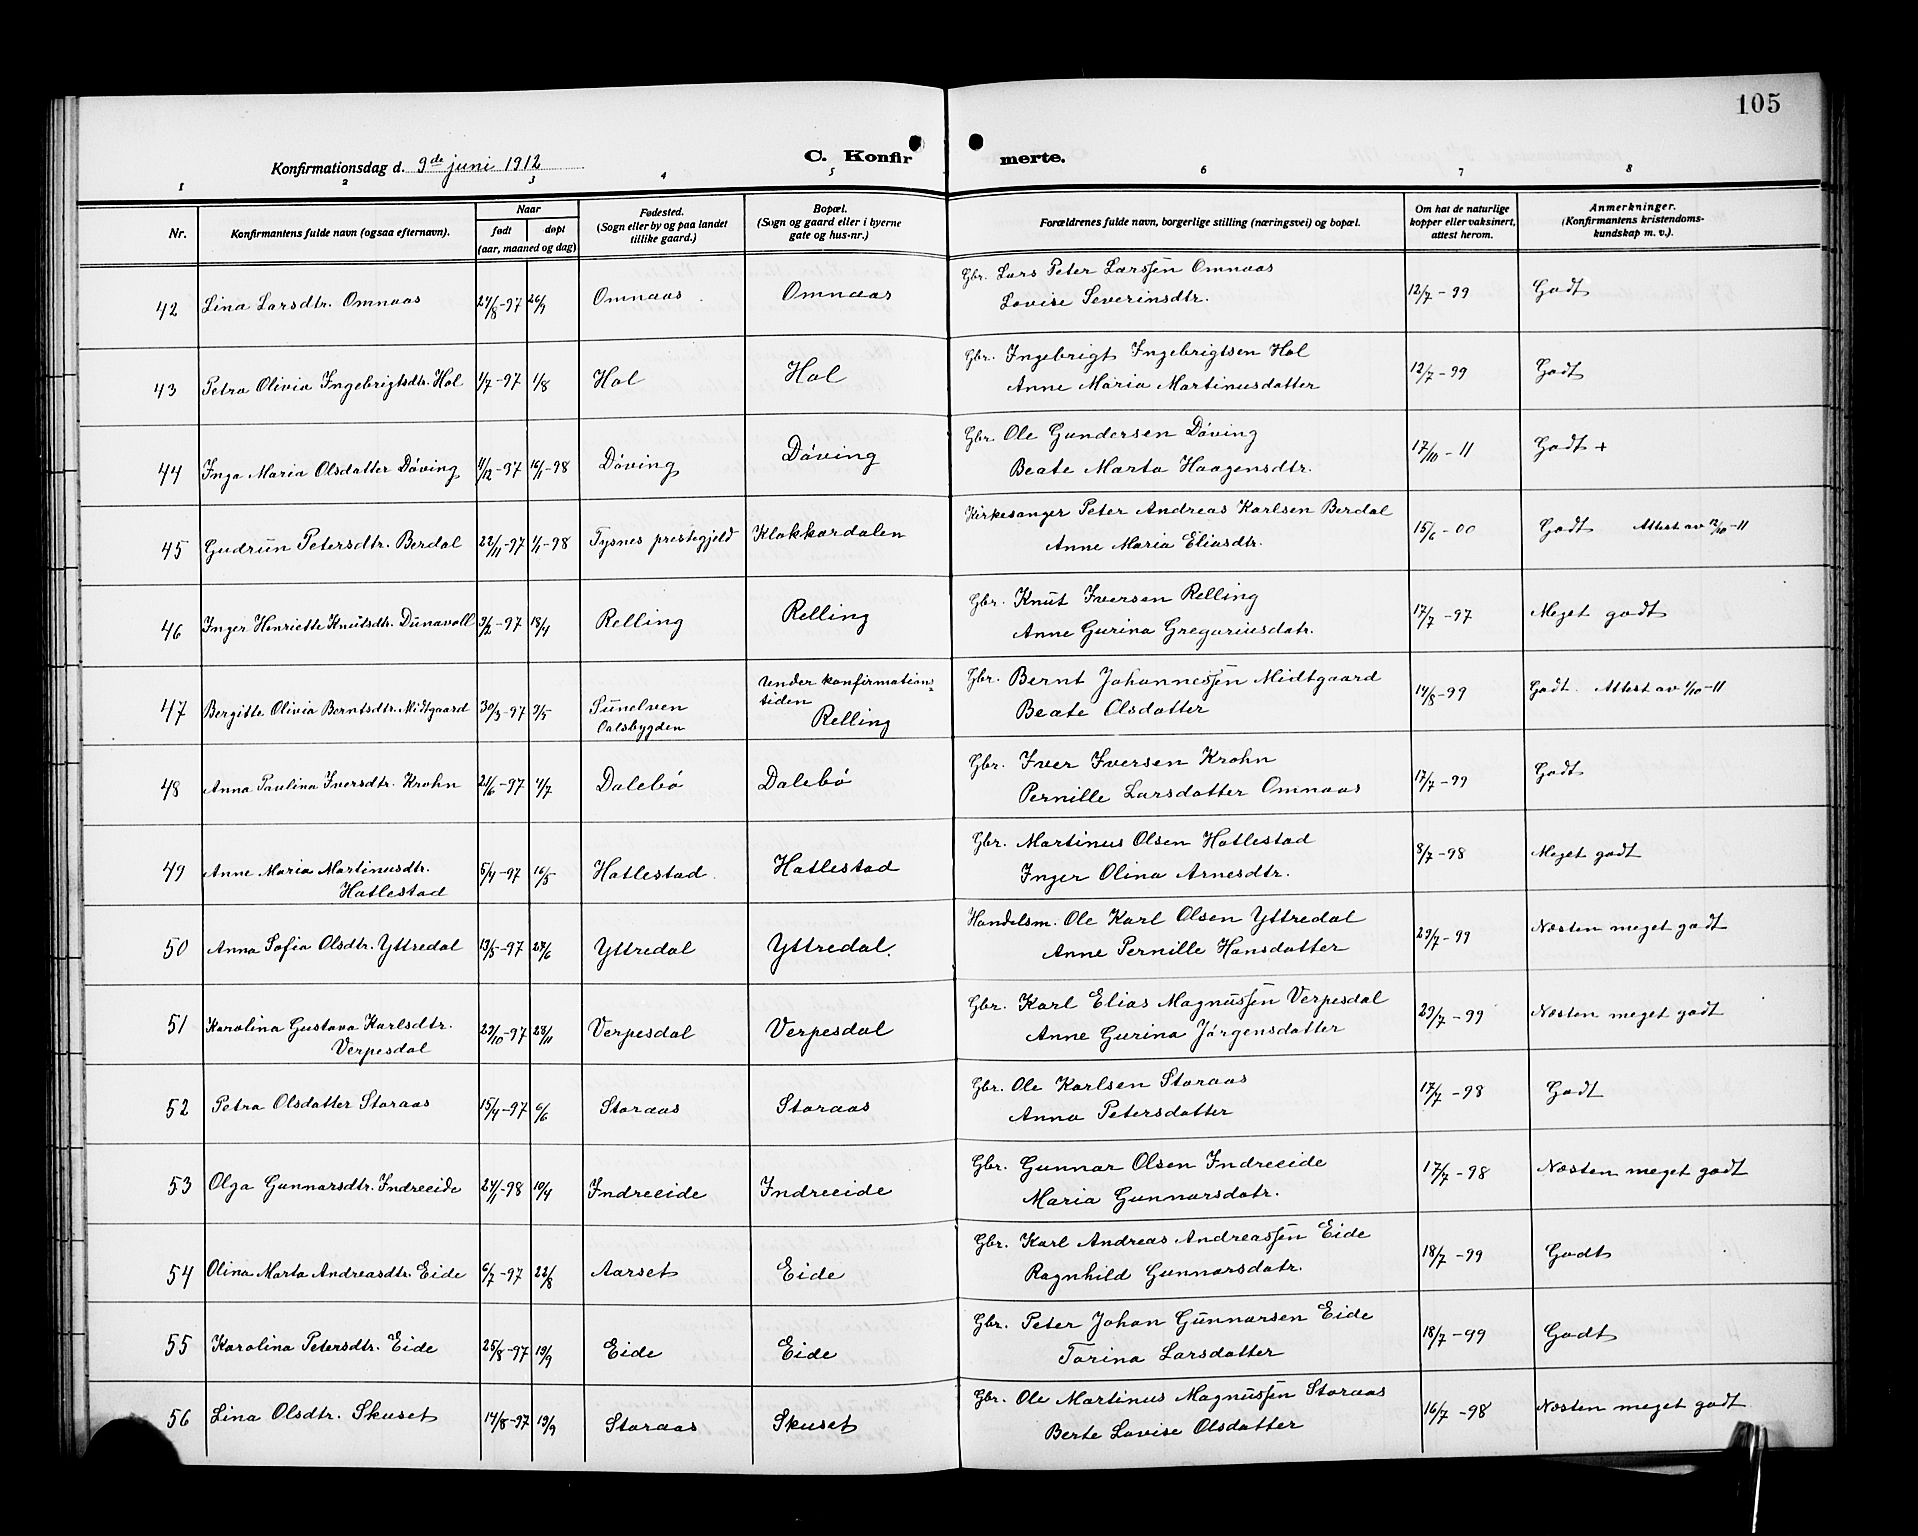 105
Konfirmationsdag d. 9de juni 1912
C. Konfirmerte.
1 2 3 4 5 6 7 8
Nr. | Konfirmantens fulde navn (ogsaa efternavn). | Naar født døpt (aar, maaned og dag) | Fødested. (Sogn eller by og paa landet tillike gaard.) | Bopæl. (Sogn og gaard eller i byerne gate og hus-nr.) | Forældrenes fulde navn, borgerlige stilling (næringsvei) og bopæl. | Om hat de naturlige kopper eller vaksinert, attest herom. | Anmerkninger. (Konfirmantens kristendoms-kundskap m. v.).
42 Lina Larsdtr. Omnaas 24/8-97 26/9 Omnaas Omnaas Gbr. Lars Peter Larssen Omnaas 12/7-99 Godt
Lovise Severinsdtr.
43 Petra Olivia Ingebrigtsdtr. Hol 1/7-97 1/8 Hol Hol Gbr. Ingebrigt Ingebrigtsen Hol 12/7-99 Godt
Anne Maria Martinusdatter
44 Inga Maria Olsdatter Döving 4/12-97 16/1-98 Döving Döving Gbr. Ole Gundersen Döving 17/10-11 Godt +
Beate Marta Haagensdtr.
45 Gudrun Petersdtr. Berdal 22/11-97 1/1-98 Tysnes prestegjeld Klokkardalen Kirkesanger Peter Andreas Karlsen Berdal 15/6-00 Godt Attest av 12/10-11
Anne Maria Eliasdtr.
46 Inger Henriette Knutsdtr. Dunavoll 3/2-97 18/4 Relling Relling Gbr. Knut Iversen Relling 17/7-97 Meget godt
Anne Gurina Gregoriusdatr.
47 Bergitte Olivia Berntsdtr. Midtgaard 30/3-97 9/5 Sunelven Oalsbygden under konfirmations-tiden Relling Gbr. Bernt Johannessen Midtgaard 14/8-99 Godt. Attest av 1/10-11
Beate Olsdatter
48 Anna Paulina Iversdtr. Krohn 21/6-97 4/7 Dalebö Dalebö Gbr. Iver Iversen Krohn 17/7-99 Godt
Pernille Larsdatter Omnaas
49 Anne Maria Martinusdtr. Hatlestad 5/4-97 16/5 Hatlestad Hatlestad Gbr. Martinus Olsen Hatlestad 8/7-98 Meget godt
Inger Olina Arnesdtr.
50 Anna Sofia Olsdtr. Yttredal 13/5-97 27/6 Yttredal Yttredal. Handelsm. Ole Karl Olsen Yttredal 29/7-99 Næsten meget godt
Anne Pernille Hansdatter
51 Karolina Gustava Karlsdtr. Verpesdal 29/10-97 28/11 Verpesdal Verpesdal Gbr. Karl Elias Magnussen Verpesdal 29/7-99 Næsten meget godt
Anne Gurina Jörgensdatter
52 Petra Olsdatter Storaas 15/4-97 6/6 Storaas Storaas Gbr. Ole Karlsen Storaas 17/7-98 Godt
Anna Petersdatter
53 Olga Gunnarsdtr. Indreeide 24/1-98 10/4 Indreeide Indreeide Gbr. Gunnar Olsen Indreeide 17/7-98 Næsten meget godt
Maria Gunnarsdatr.
54 Olina Marta Andreasdtr. Eide 6/7-97 22/8 Aarset Eide Gbr. Karl Andreas Andreassen Eide 18/7-99 Godt
Ragnhild Gunnarsdatr.
55 Karolina Petersdtr. Eide 25/8-97 19/9 Eide Eide Gbr. Peter Johan Gunnarsen Eide 18/7-99 Godt
Tarina Larsdatter
56 Lina Olsdtr. Skuset 14/8-97 19/9 Storaas Skuset Gbr. Ole Martinus Magnussen Storaas 16/7-98 Næsten meget godt
Berte Lovise Olsdatter